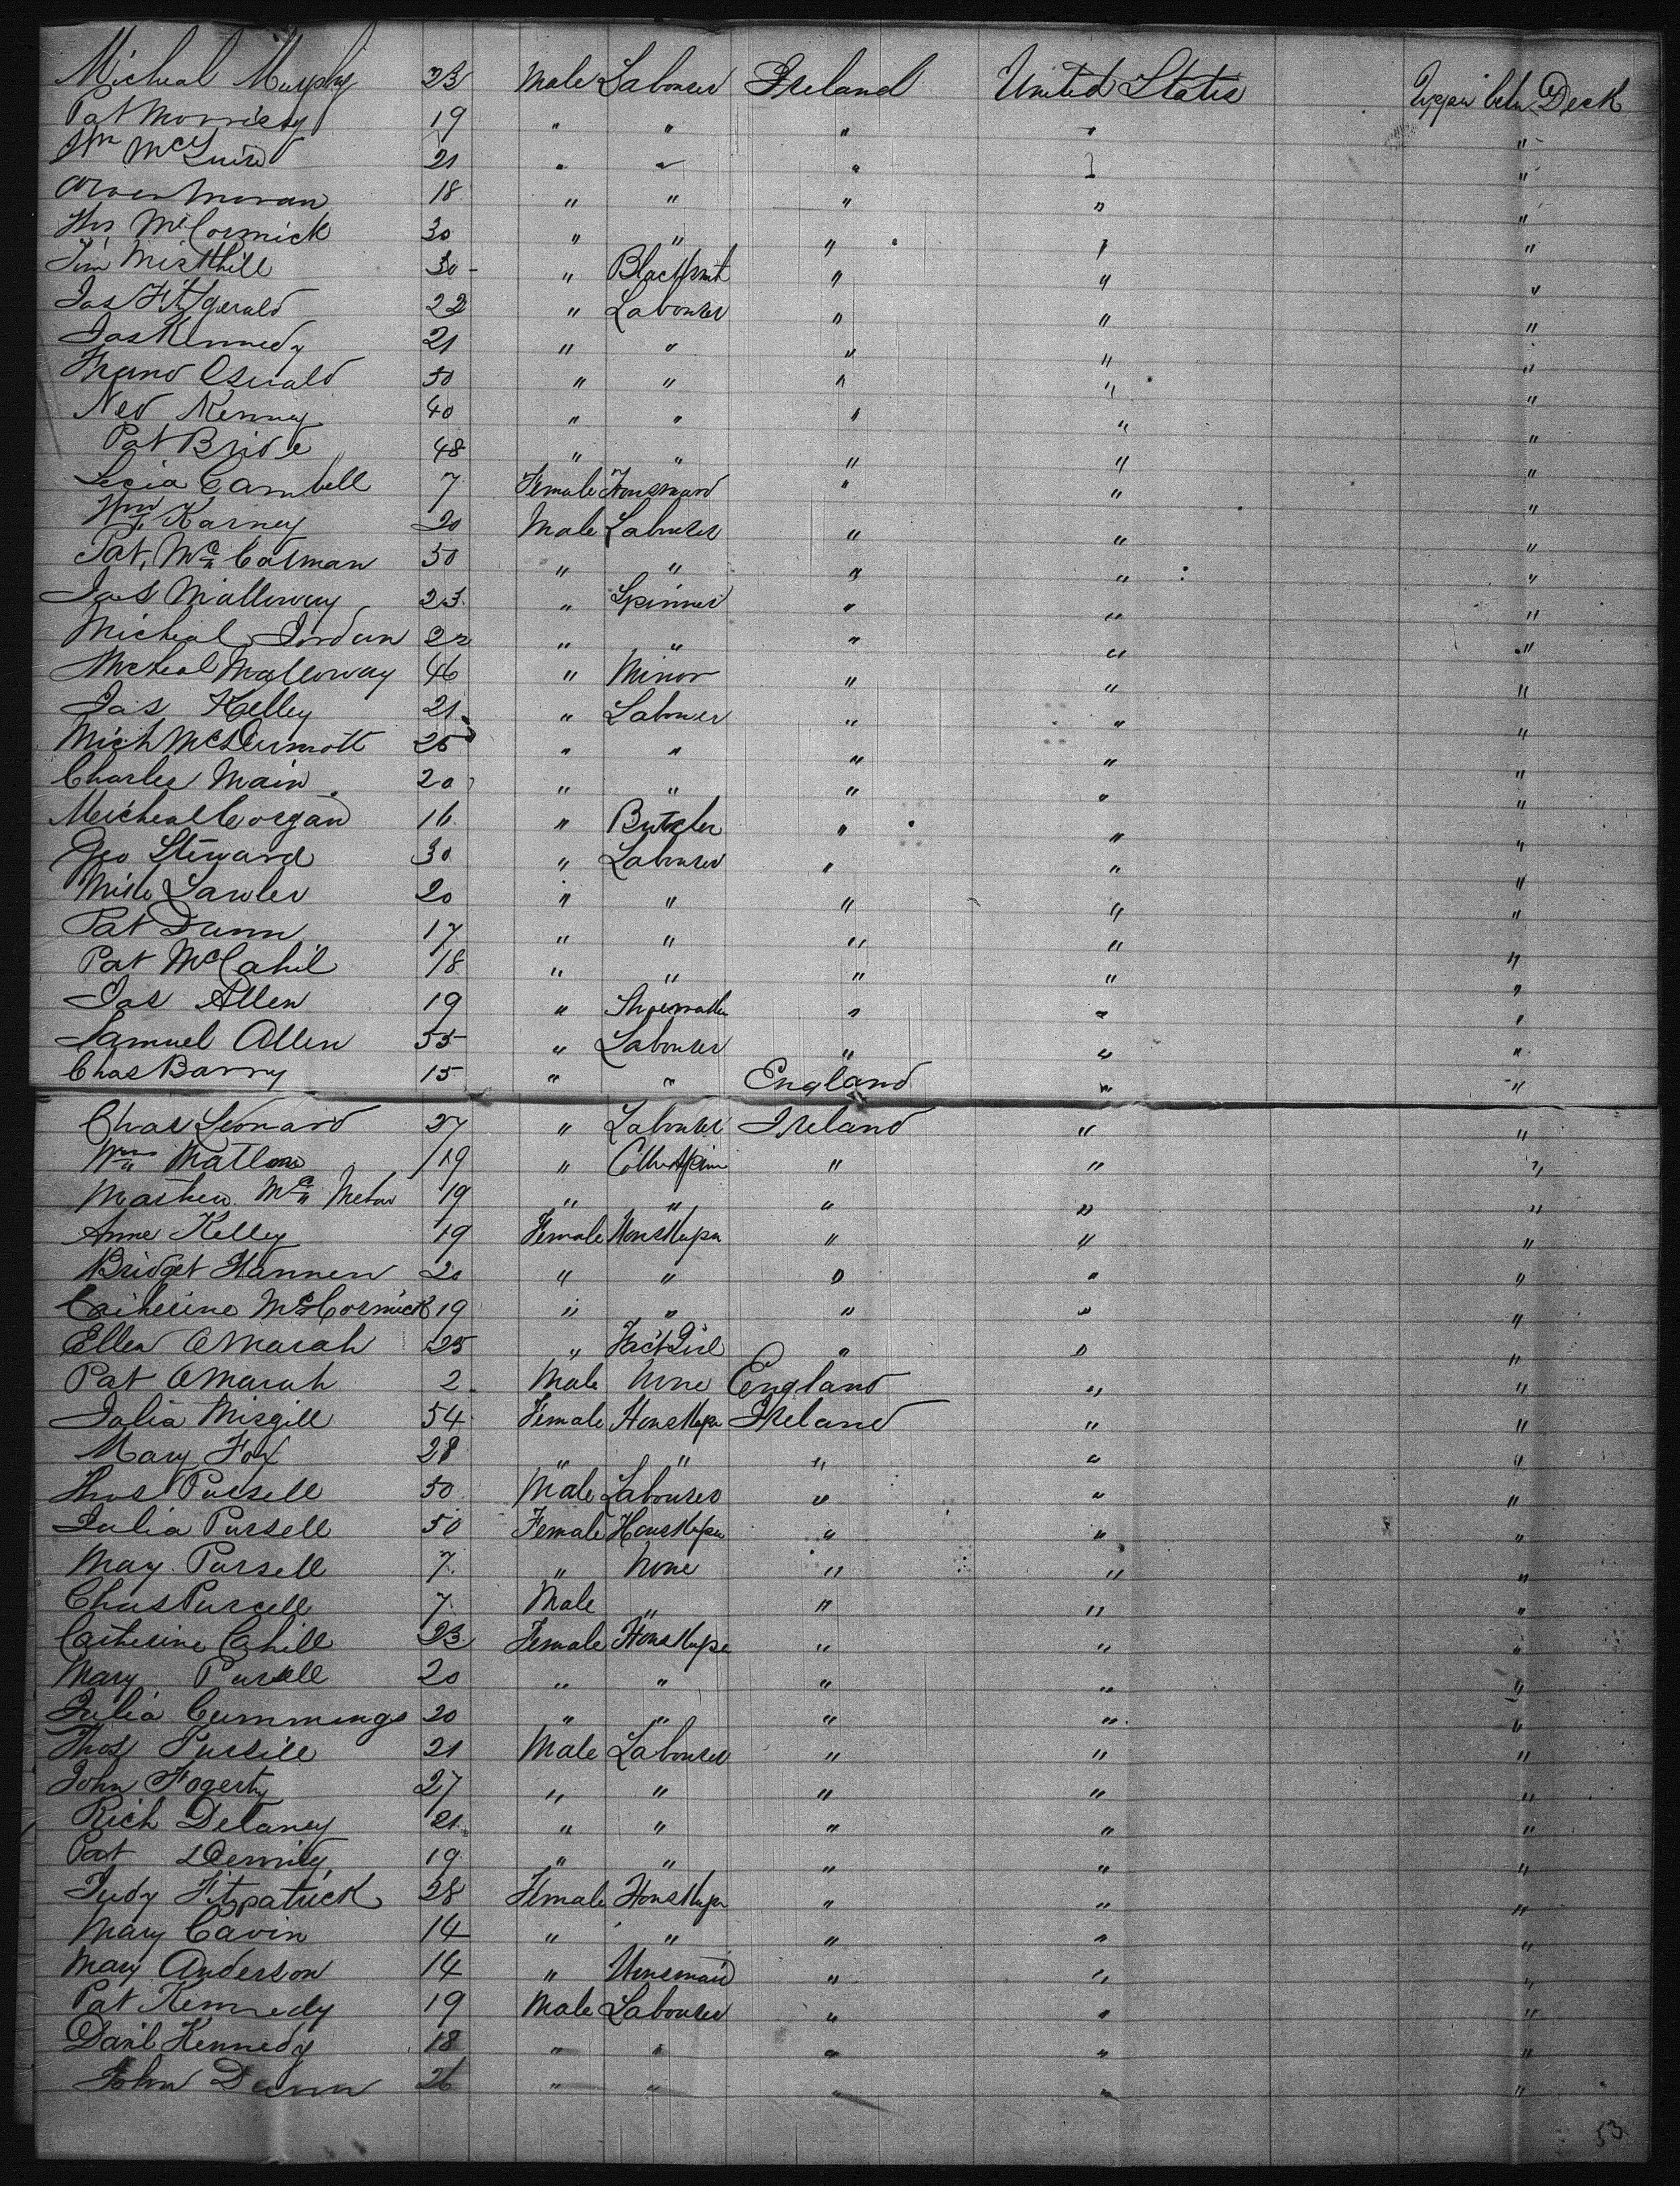 Micheal Murphy 23 Male Labourer Ireland United States Upper betw Deck
Pat Morrisey 19 " " " " "
Wm McGuire 21 " " " "
Moran 18 " " " " "
Ths McCormick 30 " " " " "
Tim 30 " Blacksmit " " "
Jas Fitzgerald 22 " Labourer " " "
Jas Kennedy 21 " " " " "
Oswald 50 " " " " "
Ned Kenney 40 " " " " "
Pat Bride 48 " " " " "
Lecia Cambell 7 Female Housmaid " " "
Wm Karney 20 Male Labourer " " "
Pat, Mc Calman 50 " " " " "
Jas Malloway 23 " Spinner " " "
Micheal Jordan 22 " " " " "
Micheal Malloway 46 " Minor " " "
Jas Kelley 21 " Labourer " " "
Mich McDermott 25 " " " " "
Charles Main 20 " " " " "
Meicheal Corgan 16 " Butcher " " "
Geo Steward 30 " Labourer " " "
Mike Lawler 20 " " " " "
Pat Dunn 17 " " " " "
Pat McCahil 18 " " " " "
Jas Allen 19 " Shoemaker " " "
Samuel Allen 55 " Labourer " " "
Chas Barry 15 " " England " "
Chas Leonard 27 " Labourer Ireland " "
Wm 19 " " " "
Mathew Mc 19 " " " " "
Anne Kelley 19 Female Houskepr " " "
Bridget Hannen 20 " " " " "
Catherine McCormick 19 " " " " "
Ellen OMarah 25 " Fact Girl " " "
Pat OMarah 2 Male None England " "
Julia Misgill 54 Female Houskepr Ireland " "
Mary Fox 28 " " " " "
Thos Pursell 50 Male Labourer " " "
Julia Pursell 50 Female Houskepr " " "
May Pursell 7 " None " " "
Chas Purcell 7 Male " " " "
Catherine Cahill 23 Female Houskepe " " "
Mary Pursell 20 " " " " "
Julia Cummings 20 " " " " "
Thos Pursill 21 Male Labourer " " "
John Fogerty 27 " " " " "
Rich Delaney 21 " " " " "
Pat 19 " " " " "
Judy Fitzpatrick 28 Female Houskepr " " "
Mary Cavin 14 " " " " "
Mary Anderson 14 " Housmaid " " "
Pat Kennedy 19 Male Labourer " " "
Danl Kennedy 18 " " " " "
John Dunn 26 " " " " "
53